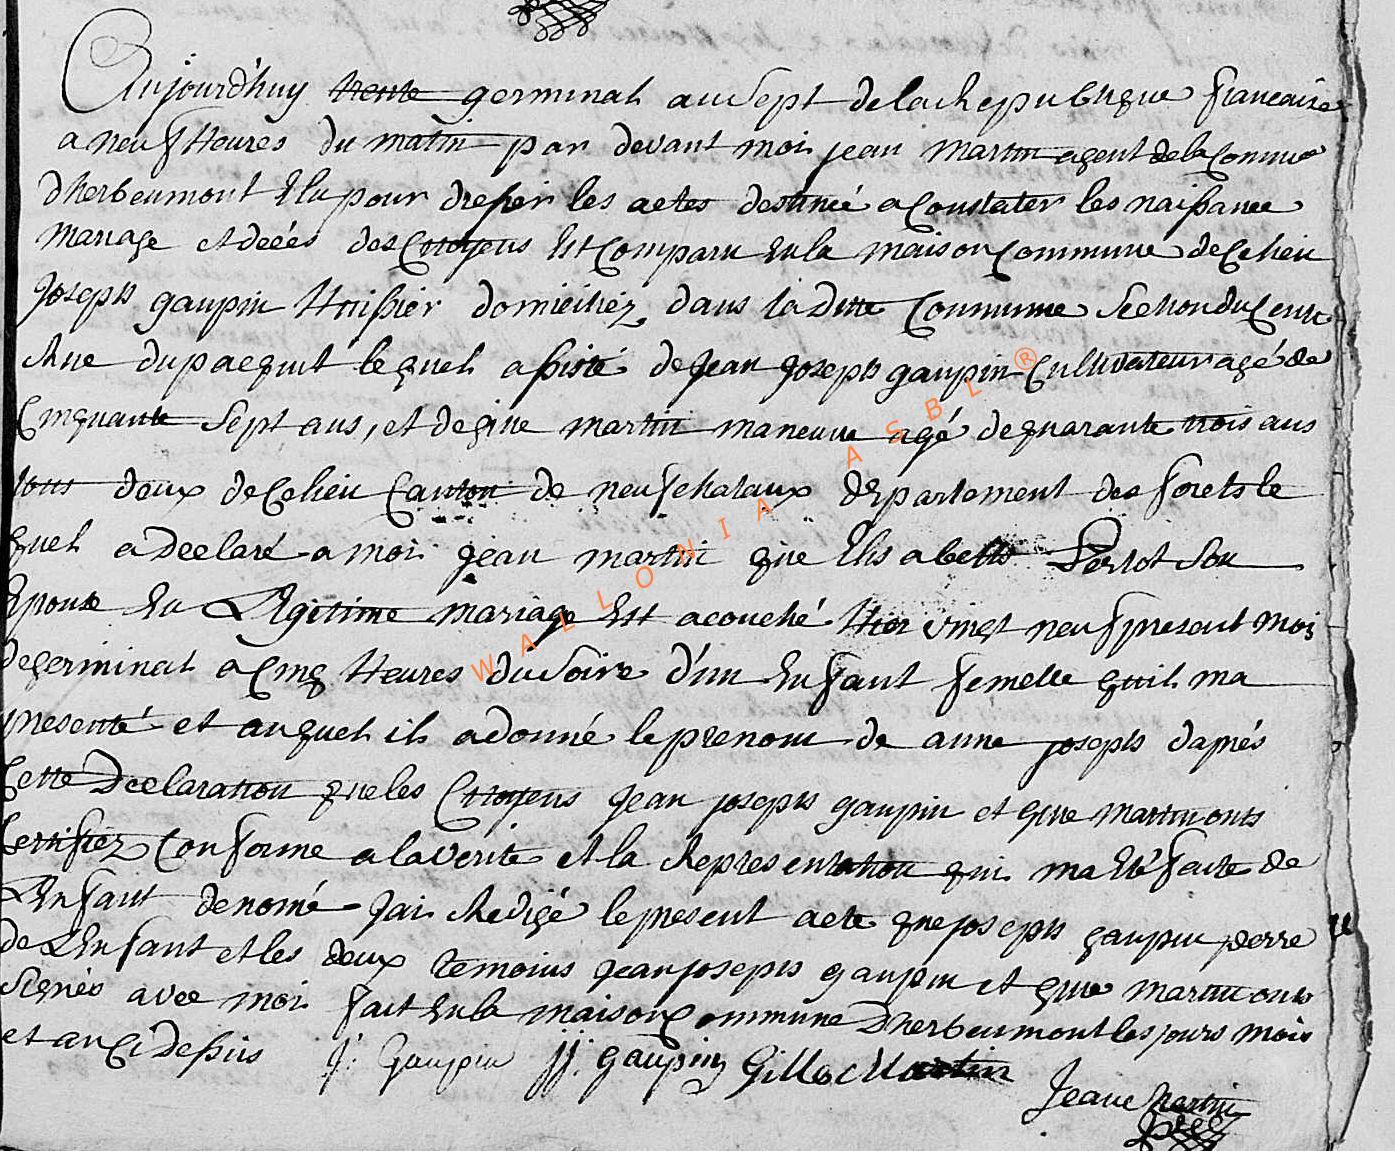 Aujourd'huy trente germinal an Sept de la Republique francaise
a neuf Heures du matin par devant moi jean martin agent de la Comune
d'herbeumont Elu pour dresser les actes destiné a Constater les naissance
mariage et décés des Citoyens Est Comparu En la maison Commune de Ce lieu
Joseph gaupin Huissier domiciliez dans la Ditte Commune Section du Centre
Rue du pacquit le quel assisté de Jean Joseph gaupin Cultivateur agé de
Cinquante Sept ans, et de gille martin maneuvre agé de quarante trois ans
tous deux de Ce lieu Canton de neufchataux departement des forets le
quel a declaré a moi jean martin que Elisabeth Perlot Son
Epouse En Legitime mariage Est acouché Hier vingt neuf present mois
de germinal a Cinq Heures du Soire d'un Enfant femelle qu'il ma
presenté et auquel il a donné le prenom de anne joseph d'aprés
Cette Declaration que les Citoyens Jean joseph gaupin et gille martin onts
Certifiez Conforme a la verite et la Representation qui ma Eté faite de
L'Enfant denomé Jai Redigé le present acte que joseph gaupin perre
de L'Enfant et les deux temoins Jean joseph gaupin et gille martin onts
Signés avec moi fait En la maison Commune D'herbeumont les jours mois
et an Ci Dessus J: Gaupin JJ: gaupin Gille Martin
Jean martin
WALLONIA ASBL ®